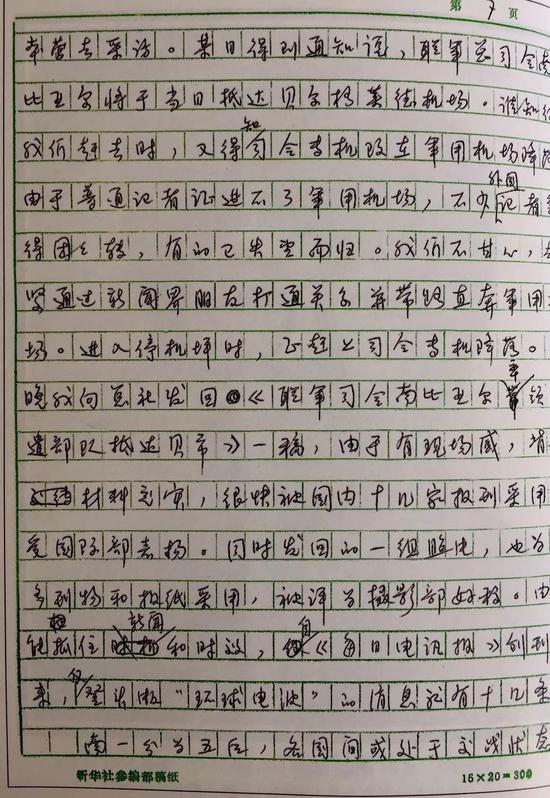 第 7 页
率营去采访。某日得到通知话，联军总司令南
比亚尔将于当日抵达贝尔格莱德机场。谁知
我们赶去时，又得知司令专机改在军用机场降落
由于普通记者证进不了军用机场，不少外国记者
得团团转，有的已失望而归。我们不甘心，
坚通过新闻界朋友打通关系并带路直奔军用
场。进入停机坪时，正赶上司令专机降落。
晚我向总社发回《联军司令南比亚尔率领
遣部队抵达贝市》一稿，由于有现场感，
材料充实，很快被国内十几家报刊采用
竞国际部表扬。同时发回的一组照片，也为
多刊物和报纸采用，被评为摄影部好稿。由
能抓住新闻和时效，自《每日电讯报》创刊
来，仅登出版“环球电波”的消息就有十几条
南一分为五后，各国间或处于交战状态
新华社参编部稿纸
15×20=300